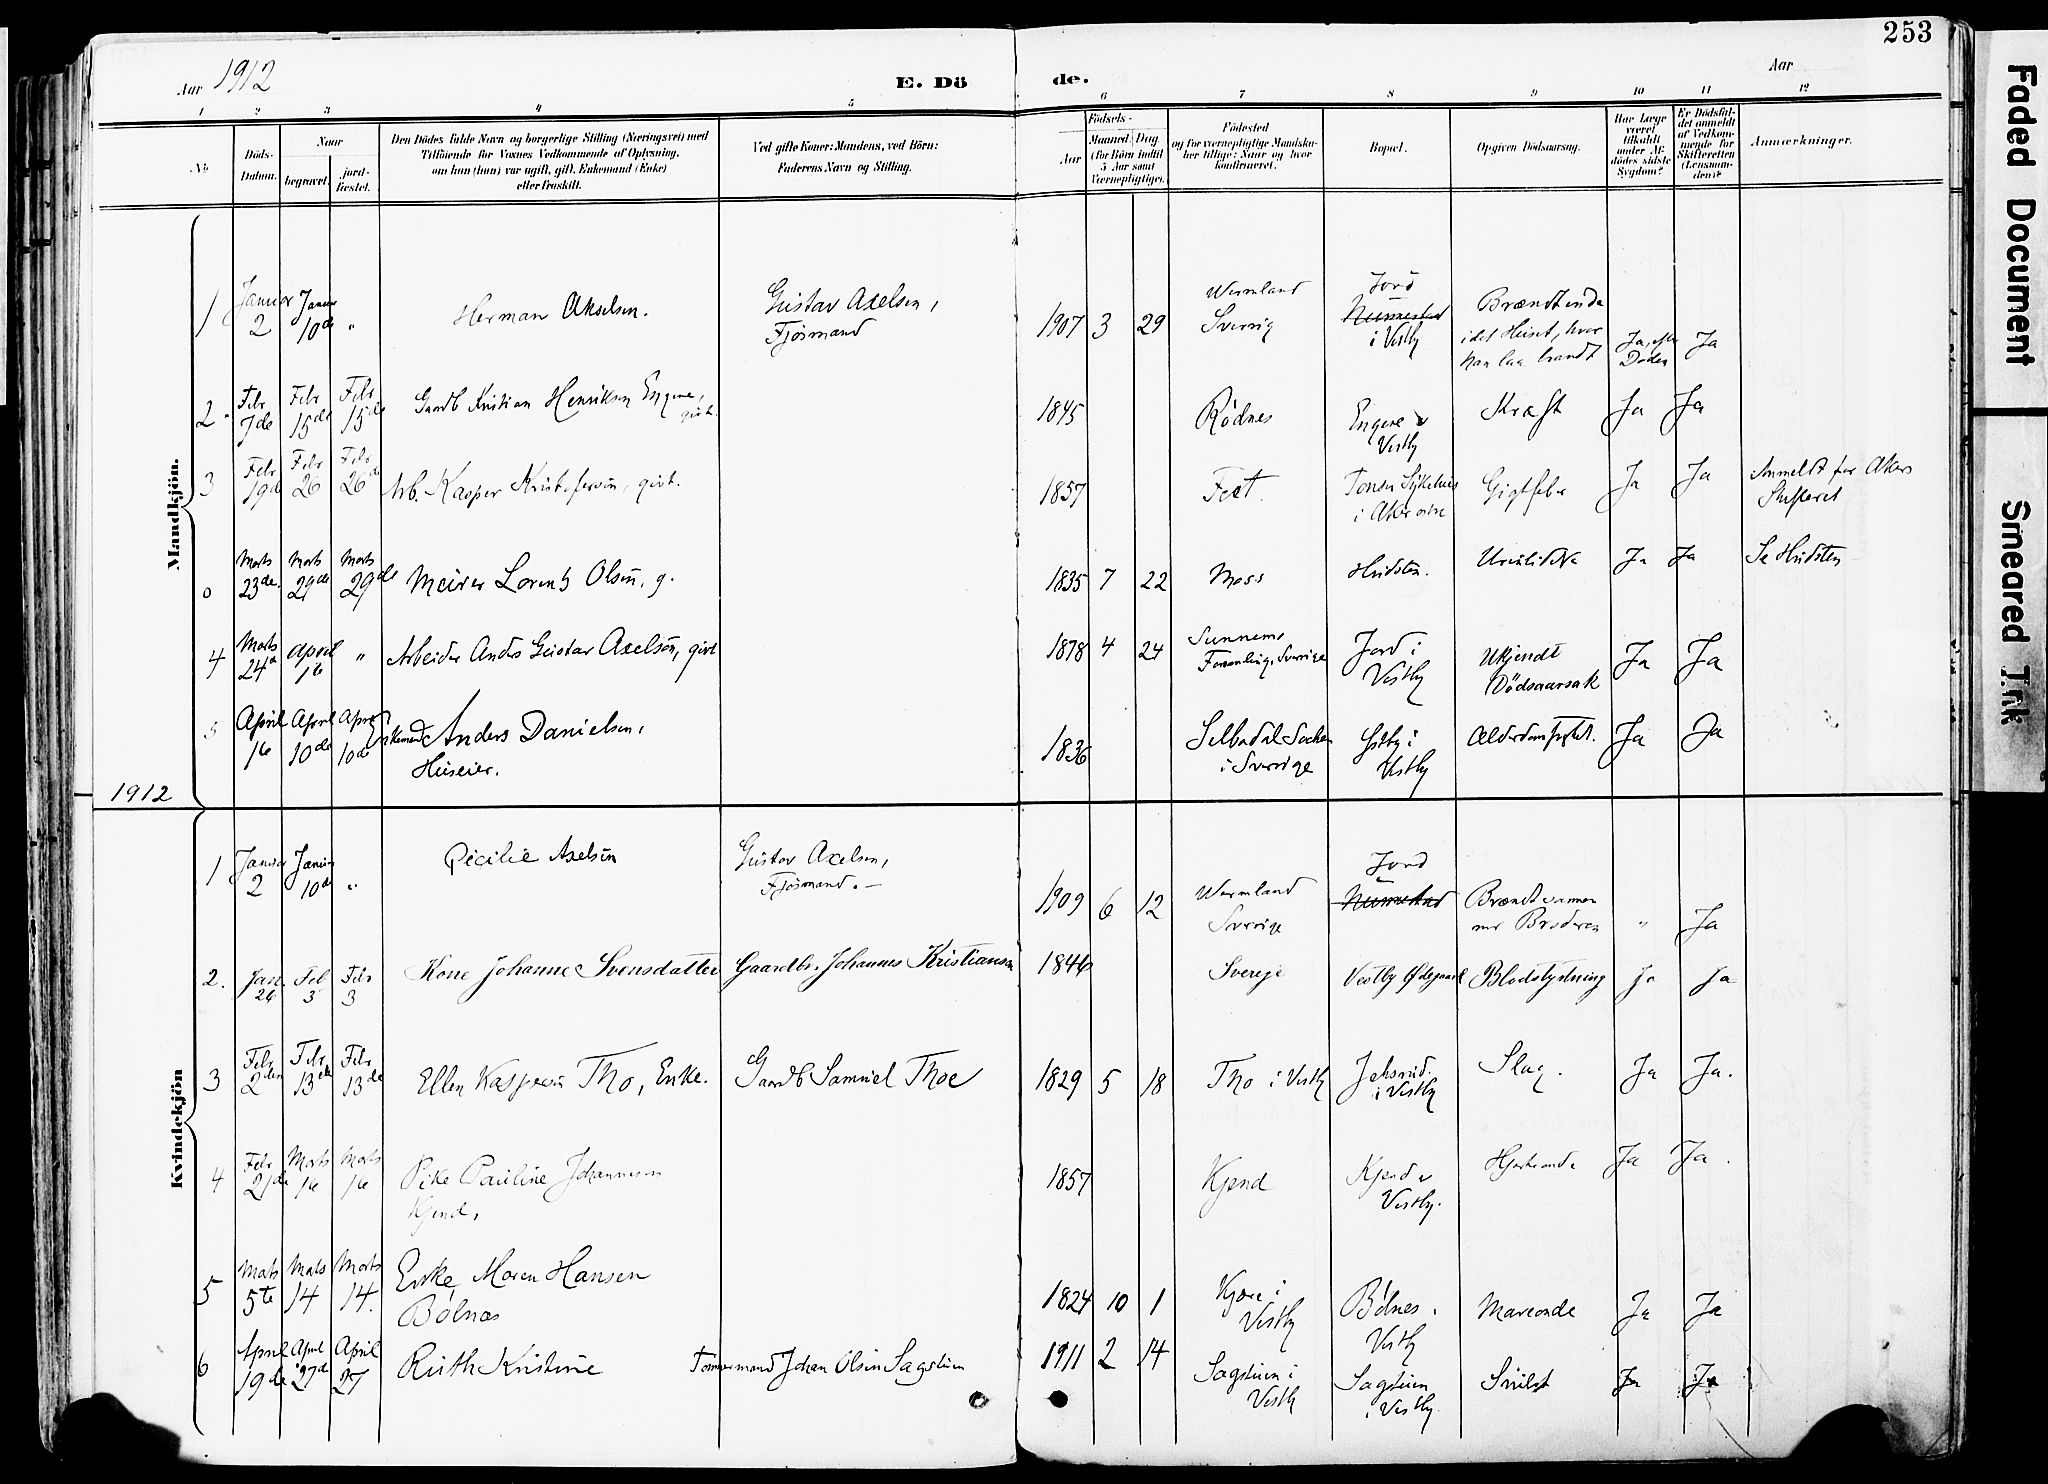 253
Aar 1912
E. Döde.
Aar
1 2 3 4 5 6 7 8 9 10 11 12
No
Döds-Datum.
Naar
begravet.
jord-fæstet.
Den Dödes fulde Navn og borgerlige Stilling (Næringsvei) med
Tilföiende for Voxnes Vedkommende af Oplysning,
om han (hun) var ugift, gift, Enkemand (Enke)
eller fraskilt.
Ved gifte Koner: Mandens, ved Börn:
Faderens Navn og Stilling.
Födsels-
Aar
Maaned Dag
(for Börn indtil
5 Aar samt
Værnepligtige).
Födested
og for værnepligtige Mandska-
ber tillige: Naar og hvor
konfirmeret.
Bopæl.
Opgiven Dödsaarsag.
Har Læge
været
tilkaldt
under Af-
dödes sidste
Sygdom?
Er Dödsfal-
det anmeldt
af Vedkom-
mende for
Skifteretten
(Lensman-
den)?
Anmærkninger.
Mandkjön.
1 Januar 2 Januar 10de " Herman Akselsen. Gustav Axelsen, Fjøsmand 1907 3 29 Wermland Sverrig Jord Nunnestad i Vestby Brændt inde i det Huset, hvor han laa brandt Ja, efter Døden Ja
2. Febr 7de Febr 15de Febr 15de Gaardb Kristian Henriksen Engene, gift. 1845 Rödnes Engene i Vestby Kræft Ja Ja
3 Febr 19d Febr 26 Febr 26d Arb. Kasper Kristofersen, gift. 1857 Feet. Tonsen Sykehus i Aker Gigtfeber Ja Ja Anmeldt for Akers Skifteret
0 Marts 23de. Marts 29de Marts 29de Meier Lorentz Olsen, g. 1835 7 22 Moss Hvidsten. Ja Ja Se Hvidsten
4 Marts 24d April 1e " Arbeider Anders Gustav Axelsen, gift 1878 4 24 Sunnemo Sverrige Jord i Vestby Ukjendt Dødsaarsak Ja Ja
5 April 1e April 10de April 10de Enkemand Anders Danielsen, Huseier. 1836 Selbodal Socken i Sverrige Vestby Alderdomssvaghet. Ja Ja
1912
Kvindekjön
1 Januar 2 Januar 10de " Cecilie Axelsen Gustav Axelsen, Fjøsmand. — 1909 6 12 Wermland Sverrige Jord Nunnestad Brændt sammen m Broderen " Ja
2. Jan. 26 Feb 3 Febr 3 Kone Johanne Svensdatter Gaardbr. Johannes Kristiansen 1846 Sverige Vestby Ødegaard Blodstyrtning Ja Ja
3 Febr 2den Febr 13de Febr 13de Ellen Kaspersen Tho, Enke. Gaardb Samuel Thoe 1829 5 18 Tho i Vestby i Vestby Slag. Ja Ja.
4 Febr 21de Marts 1e Marts 1e Pike Pauline Johannesen Kjend, 1857 Kjend Kjend i Vestby. Hjerteonde Ja Ja.
5 Marts 5te Marts 14 Marts 14. Enke, Maren Hansen Bölnæs 1824 10 1 i Vestby Bölnes i Vestby Maveonde Ja Ja
6 April 19de April 27de April 27 Ruth Kristine Tømmermand Johan Olsen Sagstuen 1911 2 14 Sagstuen i Vestby Sagstuen i Vestby. Ja Ja
Faded Document
Smeared Ink